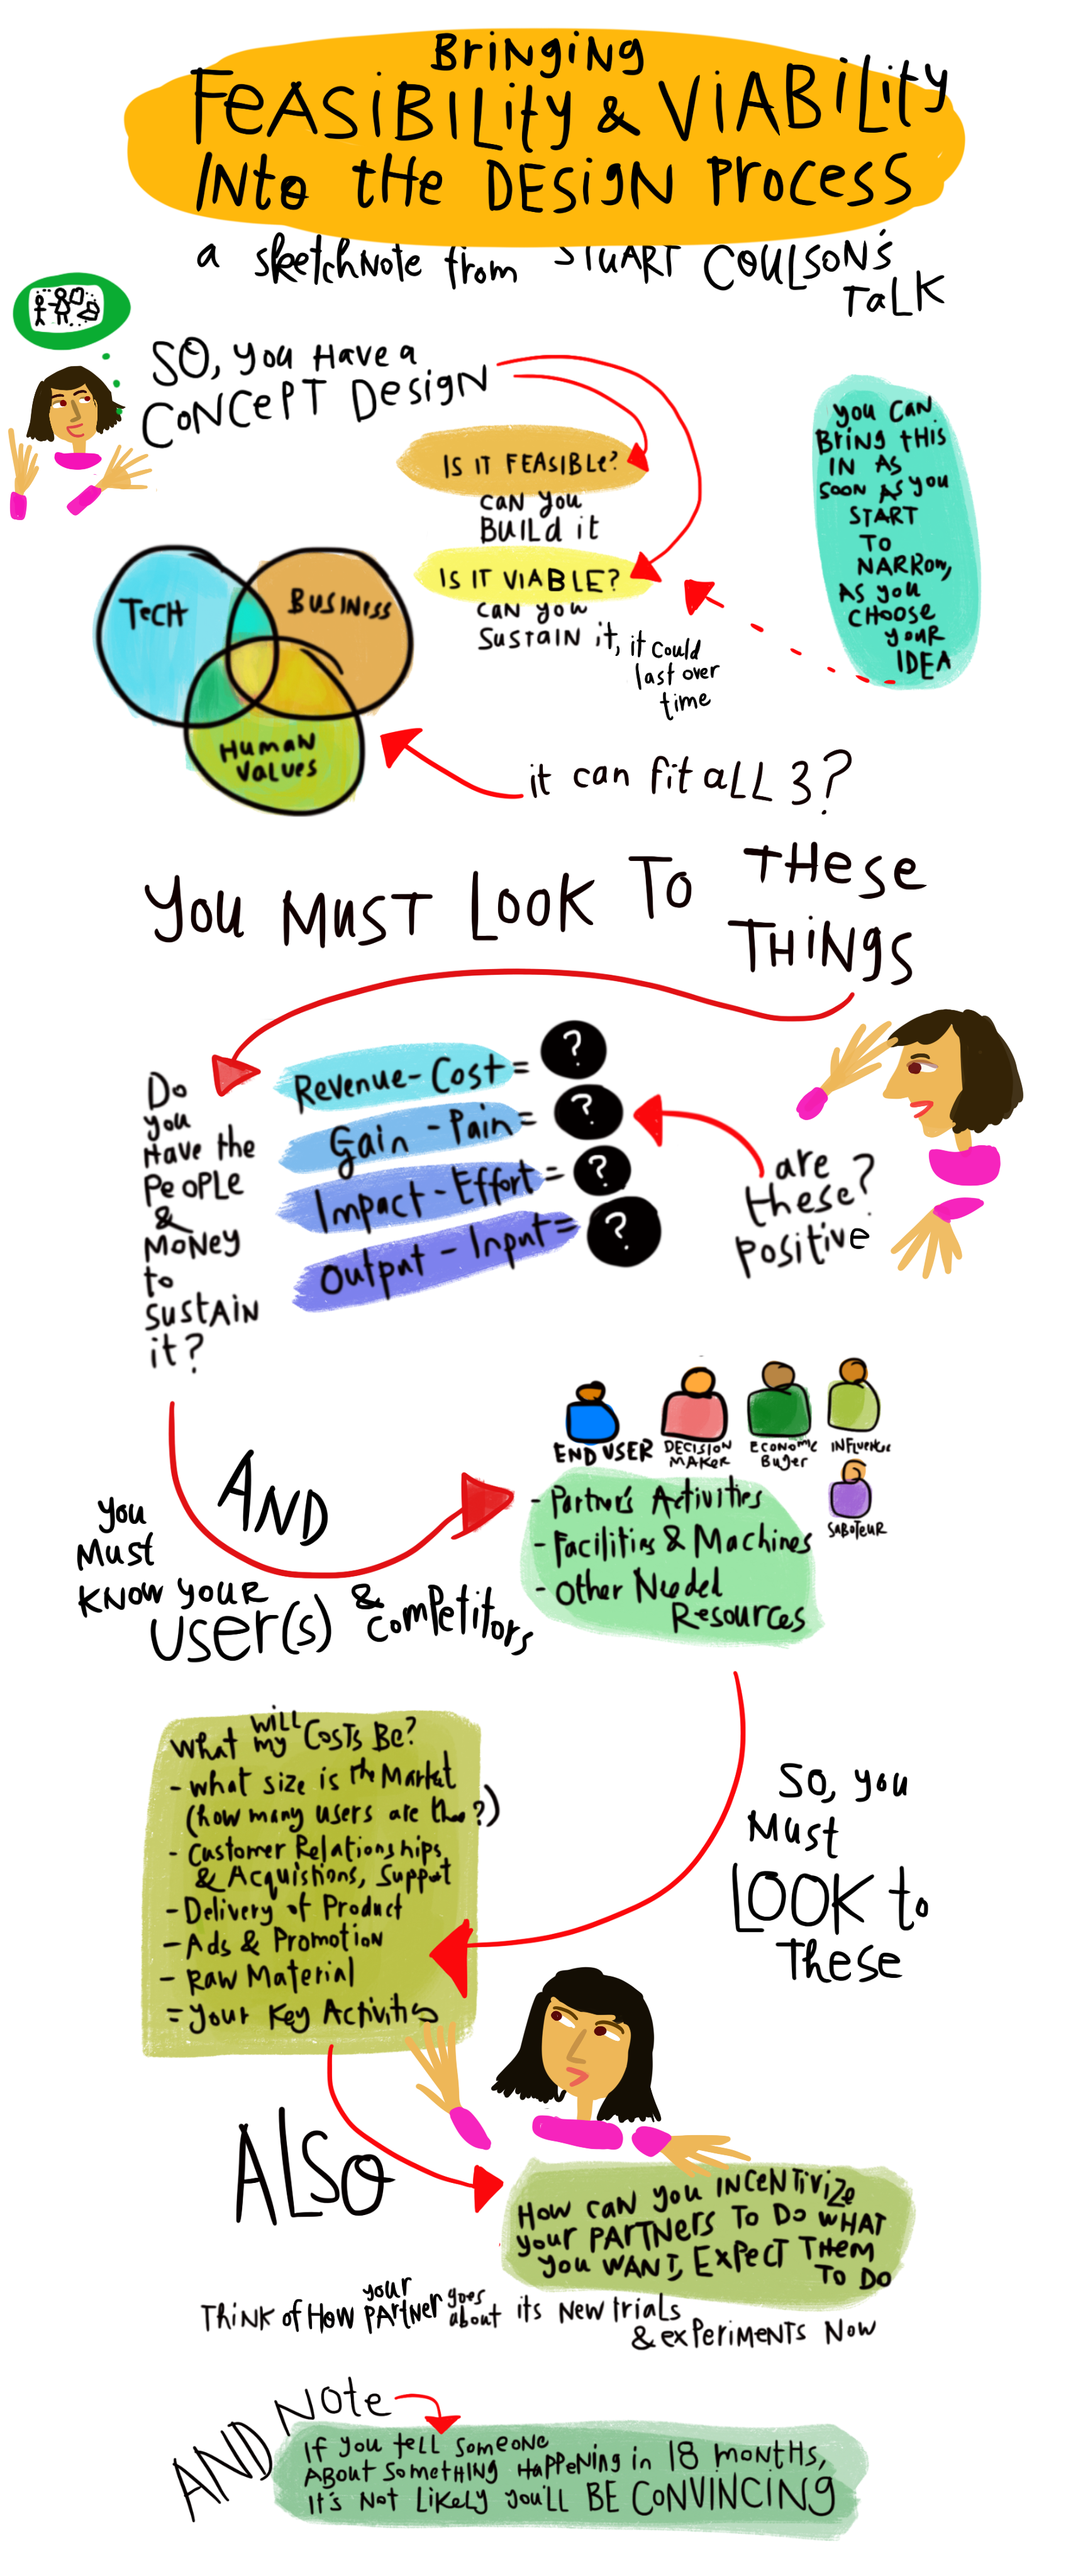 Bringing
Feasibility & Viability
Into the Design Process
a sketchnote from Stuart Coulson's
Talk
So, you have a
Concept Design
Is it feasible?
Can you
build it
Is it viable?
Can you
sustain it, it could
last over
time
You can
bring this
in as
soon as you
start
to
narrow,
as you
choose
your
idea
Tech
Business
Human
Values
it can fit all 3?
You must look to these
things
Do
you
have the
people
&
money
to
sustain
it?
Revenue - Cost = ?
Gain - Pain = ?
Impact - Effort = ?
Output - Input = ?
are
these?
positive
End User
Decision
Maker
Economic
Buyer
Influencer
Saboteur
And
You
must
know your
user(s) & competitors
- Partner's Activities
- Facilities & Machines
- Other Needed
Resources
What will my costs be?
- what size is the market
(how many users are there?)
- Customer Relationships
& Acquisitions, Support
- Delivery of Product
- Ads & Promotion
- Raw Material
= your Key Activities
So, you
must
look to
these
Also
How can you incentivize
your partners to do what
you want, expect them
to do
Think of how your partner goes about its new trials
& experiments now
And note
If you tell someone
about something happening in 18 months,
it's not likely you'll be convincing